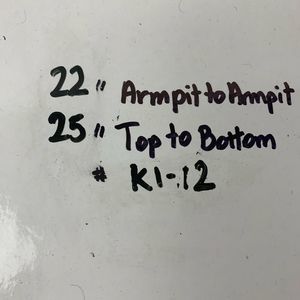 22" Armpit to Armpit
25" Top to Bottom
# K1-12